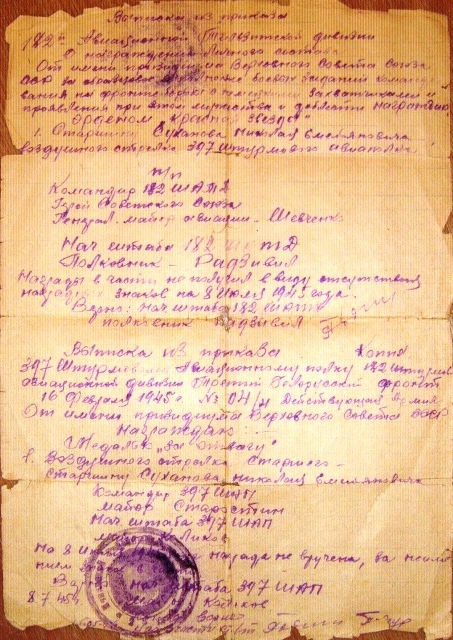 Выписка из приказа
182й Авиационной Тильзитской дивизии
О награждении личного состава
От имени президиума Верховного Совета Союза
ССР за образцовое боевых заданий командо
вания на фронте с немецкими захватчиками и
проявленые при этом мужества и доблести награждаю
Орденом „Красная Звезда"
1. Старшину Суханова Николая Емельяновича
воздушного стрелка 397 штурмового авиаполка
п/п
Командир 182 ШАТД
Герой Советского Союза
Генерал майор авиации - Шевченко
Нач штаба 182 ШАТД
Полковник - Радзивил
Награды в части не получил ввиду отсутствия
наградных знаков на 8 июля 1945 года.
Верно: Нач штаба 182 ШАТД
полковник Радзивил
Выписка из приказа Копия
397 Штурмовому Авиационному полку 182 штурмов
авиационной дивизии Третий Белорусский фронт
16 Февраля 1945 г. № 04/н Действующая армия
От имени президиума Верховного Совета СССР
Награждаю: -
Медалью „за отвагу"
1. Воздушного стрелка Старшего -
старшину Суханова Николая Емельяновича
Командир 397 ШАП
майор Старостин
Нач штаба 397 ШАП
майор Куликов
На 8 июля награда не вручена, за неиме
нием
штаба 397 ШАП
8.7.45г
Верно